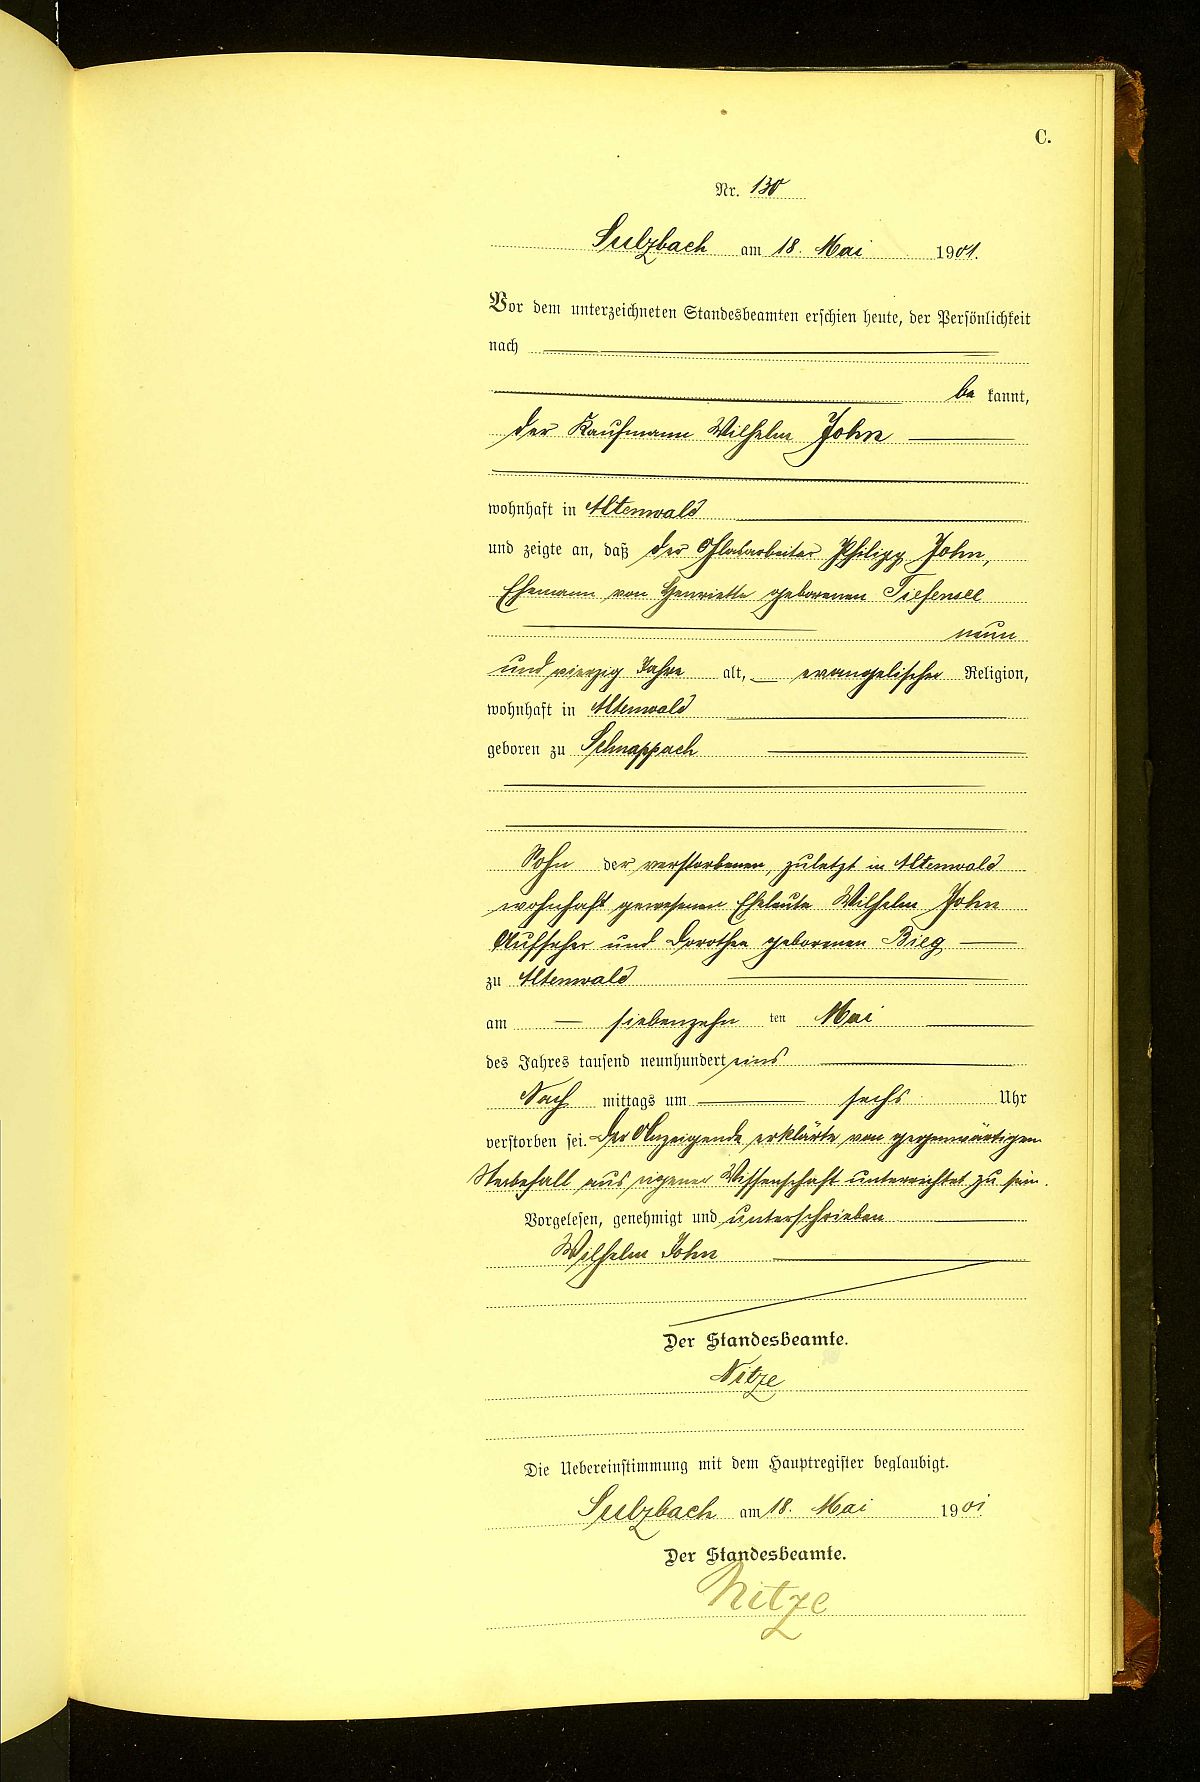 C.
Nr. 130
Sulzbach am 18. Mai 1901.
Vor dem unterzeichneten Standesbeamten erschien heute, der Persönlichkeit
nach
be kannt,
der Kaufmann Wilhelm John
wohnhaft in Altenwald
und zeigte an, daß der Glasarbeiter Philipp John,
Ehemann von Henriette geborenen Tiefensee
neun
und vierzig Jahre alt, evangelischer Religion,
wohnhaft in Altenwald
geboren zu Schnappach
Sohn der verstorbenen, zuletzt in Altenwald
wohnhaft gewesenen Eheleute Wilhelm John
Aufseher und Dorothea geborenen Bieg
zu Altenwald
am siebenzehn ten Mai
des Jahres tausend neunhundert eins
Nach mittags um sechs Uhr
verstorben sei. Der Anzeigende erklärte von gegenwärtigen
Sterbefall aus eigener Wissenschaft unterrichtet zu sein.
Vorgelesen, genehmigt und unterschrieben
Wilhelm John
Der Standesbeamte.
Nitze
Die Uebereinstimmung mit dem Hauptregister beglaubigt.
Sulzbach am 18. Mai 1901
Der Standesbeamte.
Nitze